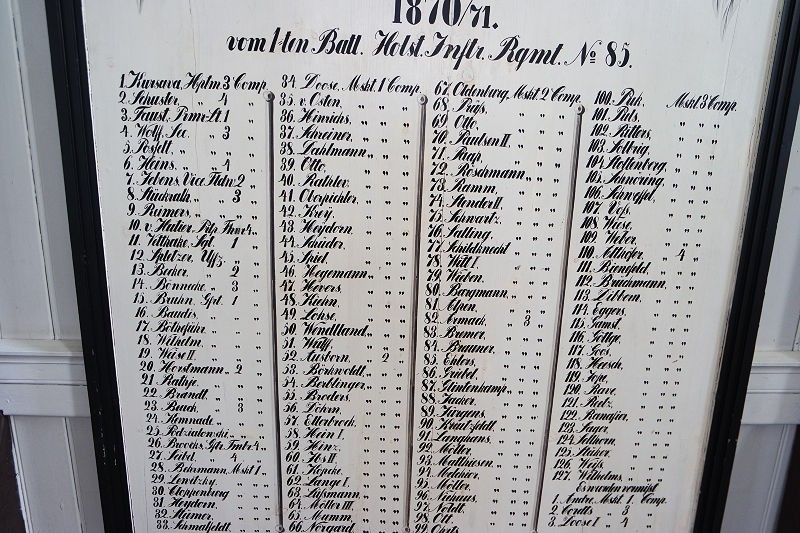 1870/71.
vom 1ten Batl. Holst. Inftr. Rgmt. № 85.
1. Kursava, Hptm. 3 Comp.
2. Schuster, „ 4 „
3. Faust, Prmr-Lt. 1
4. Wolff, Sec. „ 3 „
5. „ „ „
6. Heins, „ 4 „
7. Jebens, Vice Fldw. 2 „
8. Stuckrath, „ „ 3 „
9. Rumers, „ „ „
10. v. Halier, Fnr. 4 „
11. Sgt. 1 „
12. Spelzer, Uffz. „ „
13. Becker, „ 2 „
14. Bönneke, „ 3 „
15. Bruhn, Gfrt. 1 „
16. Baudis „ „ „
17. „ „ „
18. Wilhelm „ „ „
19. Weise II. „ „ „
20. Horstmann „ 2 „
21. Rathje „ „ „
22. Brandt, „ „ „
23. Buuck „ 3 „
24. Kemnade „ „ „
25. „ „ „
26. 4 „
27. Sabel „ 4 „
28. Behrmann, Mskt. 1 „
29. Lewitzky „ „ „
30. Cloppenburg „ „ „
31. Heydorn „ „ „
32. Stümer „ „ „
33. Schmalfeldt „ „ „
34. Doose, Mskt. 1 Comp.
35. v. Osten, „ „ „
36. Hinrichs „ „ „
37. Schreiner „ „ „
38. Dahlmann „ „ „
39. Otto „ „ „
40. Rathlev „ „ „
41. Oberpichler „ „ „
42. Kroy „ „ „
43. Heydorn „ „ „
44. Snider „ „ „
45. Spiel „ „ „
46. Hagemann „ „ „
47. Hevers „ „ „
48. Kühn „ „ „
49. Lohse „ „ „
50. Wendtland „ „ „
51. Wulff „ „ „
52. Ausborn „ 2 „
53. Börkvoldt „ „ „
54. Boblinger „ „ „
55. Broders „ „ „
56. Döhrn „ „ „
57. Ellerbrock „ „ „
58. Hein I. „ „ „
59. Hinz „ „ „
60. Jbs II „ „ „
61. Köpcke „ „ „
62. Lange I. „ „ „
63. Lussmann „ „ „
64. Möller III. „ „ „
65. Mumm „ „ „
66. Norgard „ „ „
67. Oldenburg, Mskt. 2 Comp.
68. Prüss „ „ „
69. Otto „ „ „
70. Paulsen II. „ „ „
71. Raap „ „ „
72. Röschmann „ „ „
73. Ramm „ „ „
74. Stender II. „ „ „
75. Schwartz „ „ „
76. Salling „ „ „
77. Schildknecht „ „ „
78. Witt I. „ „ „
79. Wieben „ „ „
80. Bargmann „ „ „
81. Alpen „ „ „
82. Asmack „ 3 „
83. Bremer „ „ „
84. Brauner „ „ „
85. Ehlers „ „ „
86. Griebel „ „ „
87. Glintenkamp „ „ „
88. Jacker „ „ „
89. Jürgens „ „ „
90. Kreutzfeldt „ „ „
91. Langhans „ „ „
92. Möller „ „ „
93. Matthiesen „ „ „
94. Melchior „ „ „
95. Möller „ „ „
96. Niehuus „ „ „
97. Noldt „ „ „
98. Ott „ „ „
99. Ohrts „ „ „
100. Pück, Mskt. 3 Comp.
101. Puls „ „ „
102. Rütters „ „ „
103. Solterig „ „ „
104. Stoltenberg „ „ „
105. Schnöring „ „ „
106. Schnepfel „ „ „
107. Voss „ „ „
108. Wiese „ „ „
109. Weber „ „ „
110. Allhofer „ 4 „
111. Biengfeld „ „ „
112. Bruchmann „ „ „
113. Dibbern „ „ „
114. Eggers „ „ „
115. Gamst „ „ „
116. „ „ „
117. Goos „ „ „
118. Heesch „ „ „
119. Jepp „ „ „
120. Rave „ „ „
121. Ratz „ „ „
122. „ „ „
123. Sager „ „ „
124. Sellhorn „ „ „
125. Stüker „ „ „
126. Weiss „ „ „
127. Wilhelms „ „ „
Es wurden vermisst
1. Andre, Mskt. 1. Comp.
2. Cordts „ 3 „
3. Doose I „ 4 „